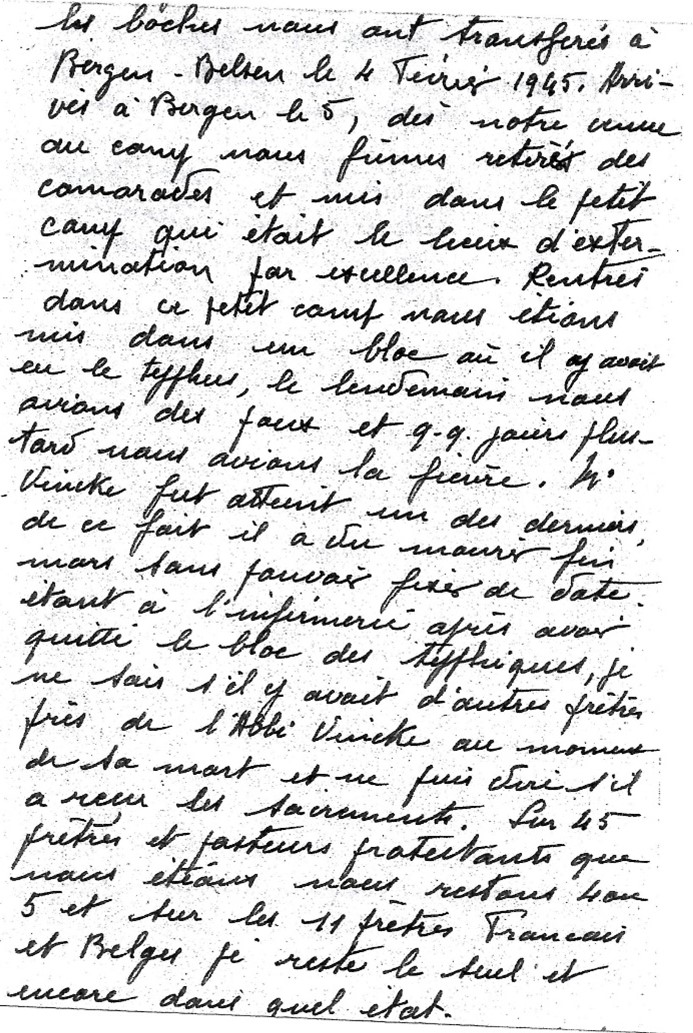 les bôches nous ont transferés à
Bergen-Belsen le 4 Février 1945. Arri-
vés à Bergen le 5, dès notre venue
au camp nous fûmes retirés des
camarades et mis dans le petit
camp qui était le lieux d'exter-
mination par excellence. Rentrés
dans ce petit camp nous étions
mis dans un bloc où il y avait
eu le typhus, le lendemain nous
avions des poux et q.q. jours plus-
tard nous avions la fièvre. Mr
Vincke fut atteint un des derniers,
de ce fait il a du mourir fin
mars sans pouvoir fixer de date.
étant à l'infirmerie après avoir
quitté le bloc des typhiques, je
ne sais s'il y avait d'autres prêtres
près de l'Abbé Vincke au moment
de sa mort et ne puis dire s'il
a reçu les sacrements. Sur 45
prêtres et pasteurs protestants que
nous étions nous restons 4 ou
5 et sur les 11 prêtres Francais
et Belges je reste le seul et
encore dans quel état.